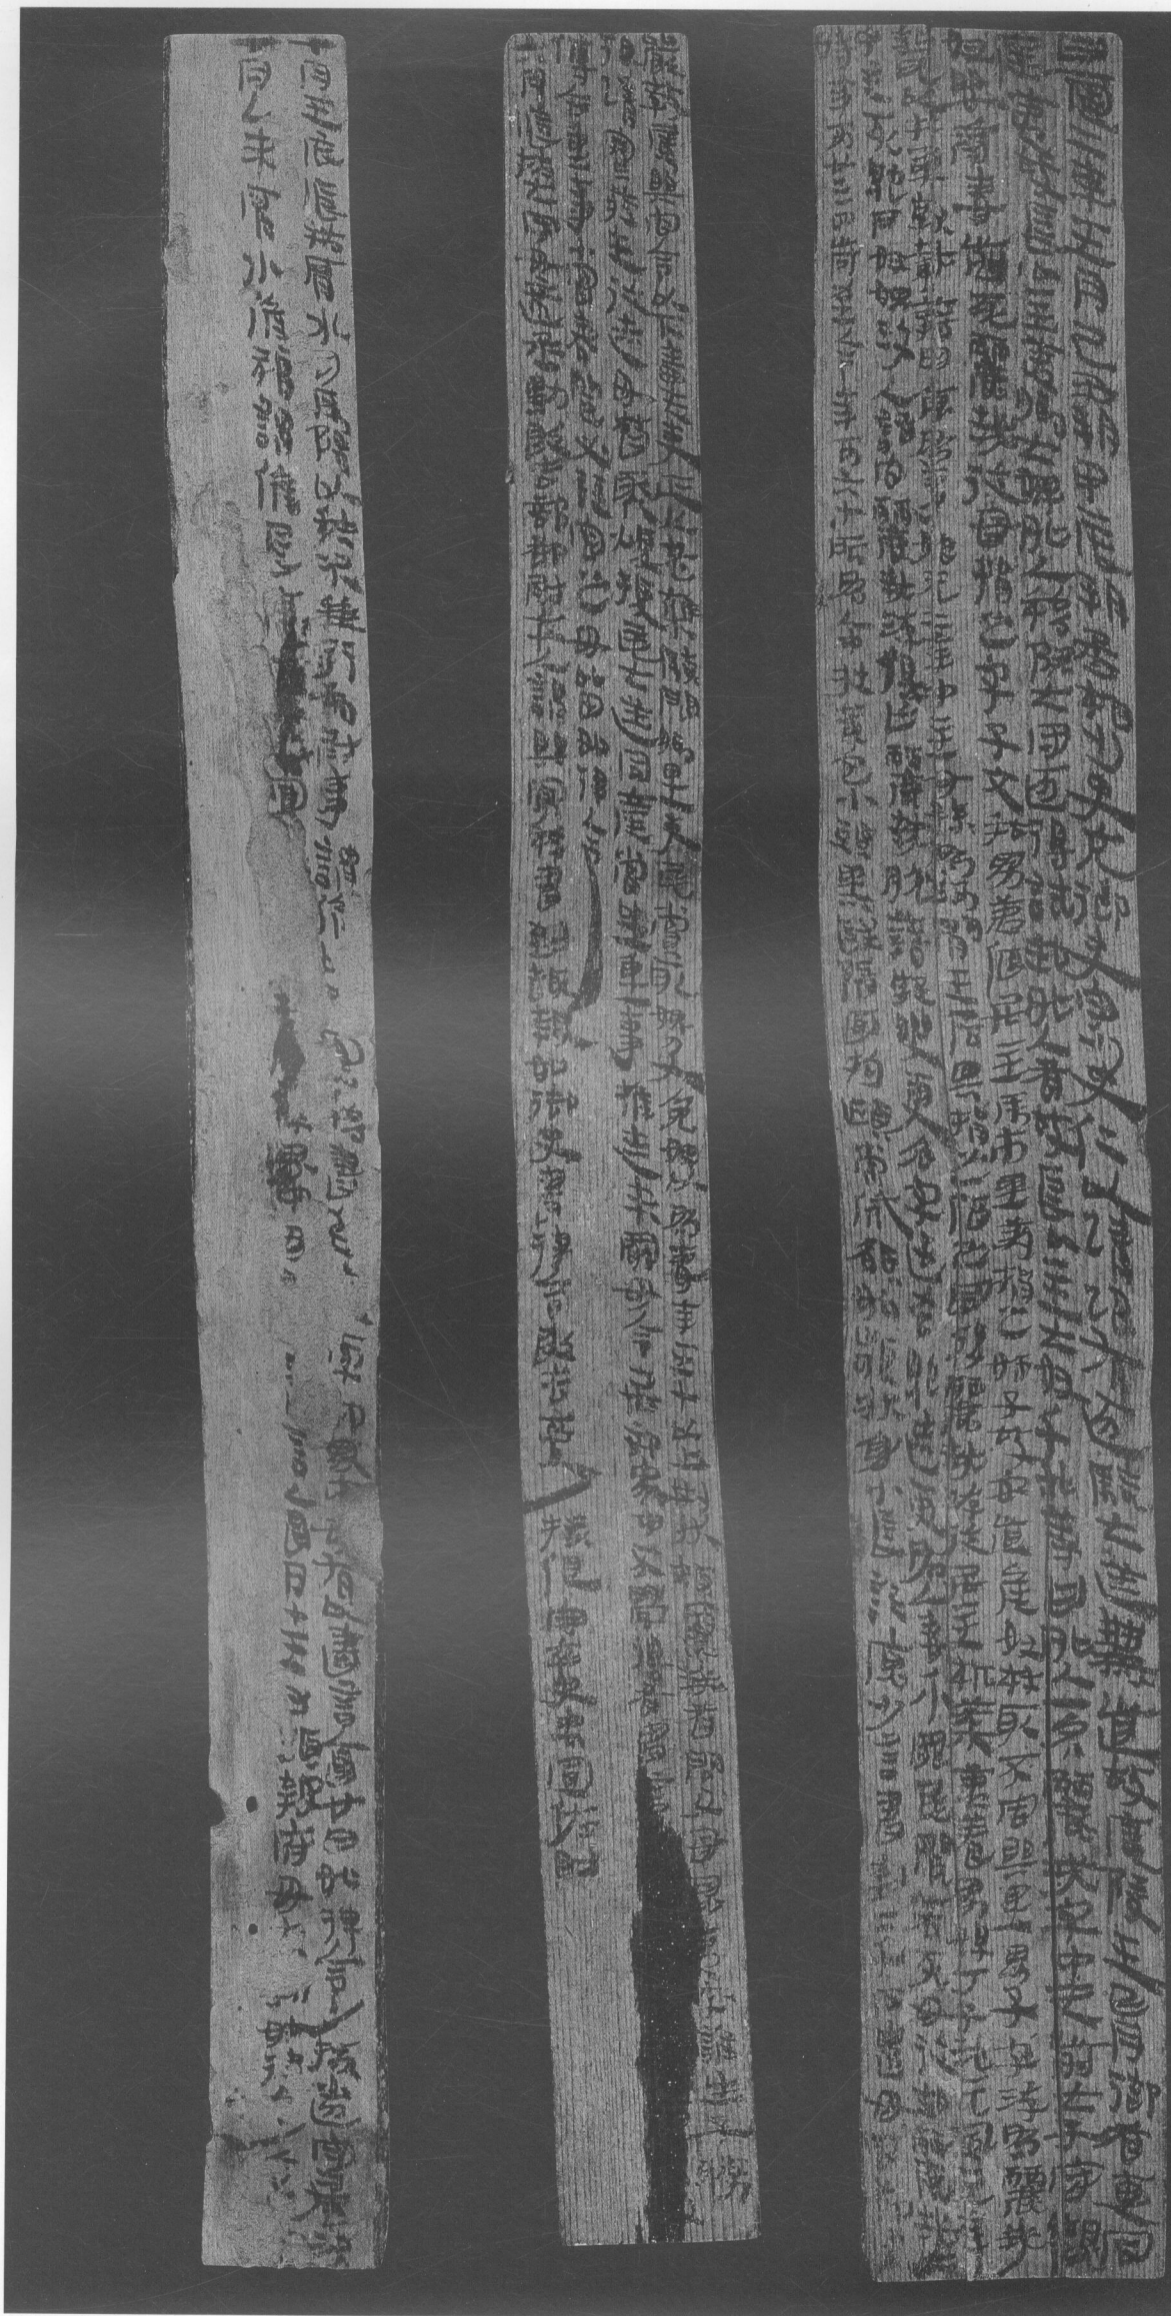 甘露二年五月己丑朔甲辰朔丞相少史充御史守少史仁以請詔有逐驗大逆無道故廣陵王胥御者惠同
產弟故長公主弟卿大婢外人移郡大守逐得試知外人者故長公主大奴千子等曰外人一名麗戎字中夫前太子守觀
奴嬰齊妻前死麗戎從母捐之字子文私男弟偃居主馬市里第捐之姊子故安道侯奴林取不審縣里男子字游為麗戎
聟以牛車就載籍田倉為事始元二年中主女孫為河間王后與捐之偕之國後麗戎游從居主机棻弟養男孫丁子沱元鳳元年
中主死絕戶奴婢沒入諸官麗戎游俱亡麗戎脫籍疑變更名字遠走絕迹更為人妻介罪民間若死毋從知麗戎此
時年可廿三四歲至今年可六十所為人中壯黃色小頭黑髮隋面拘頤常戚額朐頻狀身小長詫廋少言書到二千石遣毋害都吏
嚴教屬縣官令以下嗇夫吏正父老雜驗問鄉里吏民賞取婢及免婢以為妻年五十以上刑狀類麗戎者問父母昆弟本誰生子務
得請實發生從迹毋督聚煩擾民大逆同產當坐重事推迹未罷毋令居部界中不覺得者書言
傳舍重事當奏聞必謹密之毋留如律令
六月張掖大守毋適丞勳敢告部都尉卒人謂縣寫移書到趣報如御史書律令敢告卒人/掾佷守卒史禹置佐財
七月壬辰張掖肩水司馬陽以秩次兼行都尉事謂候城尉寫移書到庾索部界中毋有以書言會廿日如律令/掾遂守屬
七月乙未肩水候福謂候長寫移書到界中毋有以書言會月十五日須報府毋如律令